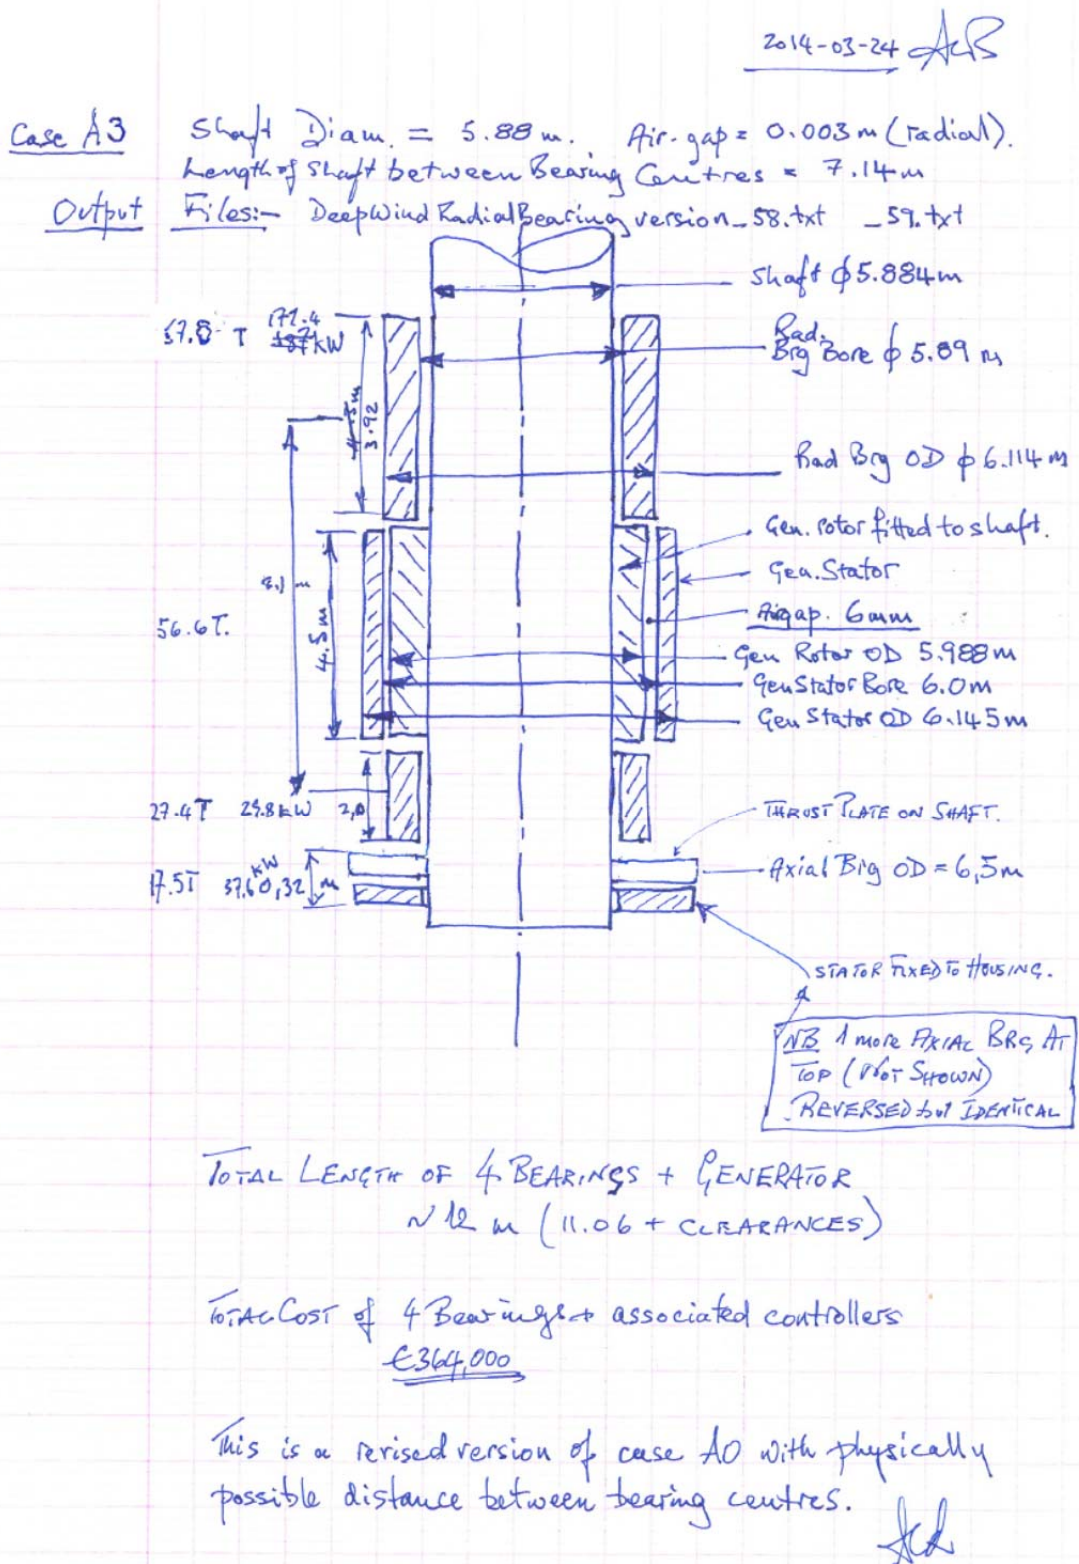 2014-03-24 AcB
Case A3 Shaft Diam. = 5.88 m. Air-gap = 0.003 m (radial).
Length of shaft between Bearing Centres = 7.14 m
Output Files:- DeepWindRadialBearing version_58.txt _59.txt
shaft ϕ 5.884 m
T kW
Rad.
Brg Bore ϕ 5.89 m
3.92
Rad Brg OD ϕ 6.114 m
Gen. rotor fitted to shaft.
Gen. Stator
8.1 m
Airgap. 6mm
56.6T.
4.5 m
Gen Rotor OD 5.988 m
Gen Stator Bore 6.0 m
Gen Stator OD 6.145 m
27.4T 29.8 kW 2,0
THRUST PLATE ON SHAFT.
17.5T 37.6 kW 0,32 m
Axial Brg OD = 6,5 m
STATOR FIXED TO HOUSING.
NB 1 more AXIAL BRG AT
TOP (NOT SHOWN)
REVERSED but IDENTICAL
TOTAL LENGTH OF 4 BEARINGS + GENERATOR
~ 12 m (11.06 + CLEARANCES)
TOTAL COST of 4 Bearings + associated controllers
€364,000
This is a revised version of case A0 with physically
possible distance between bearing centres.